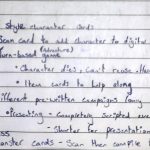 Style character cards
Scan card to add character to digital
turn-based game (adventure)
• Character dies; can't reuse them
• Item cards to help along
different pre-written campaigns
• Presenting - Completely scripted
- Shorter for presentation
Monster cards - Scan then